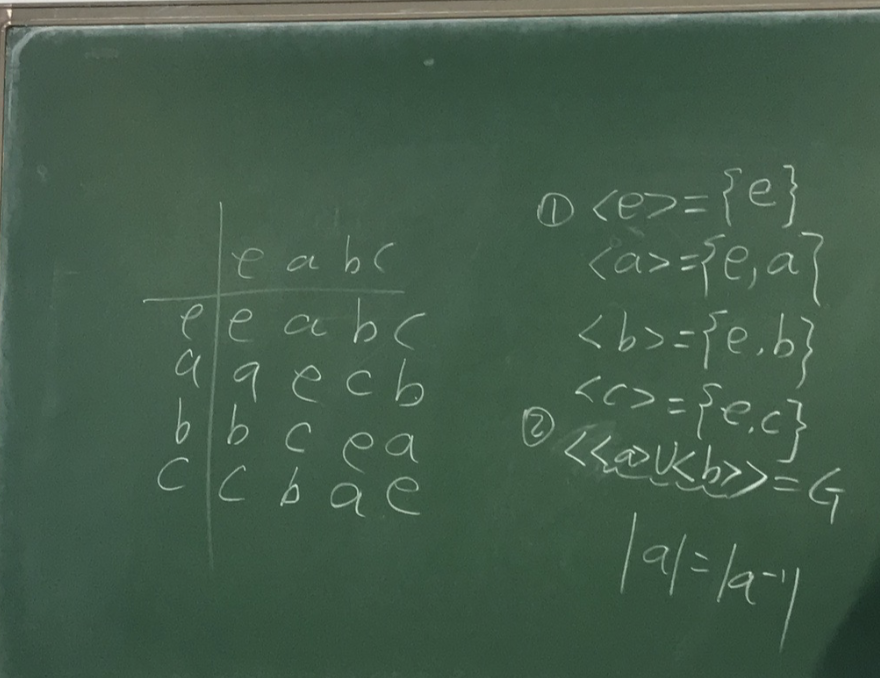 e a b c
e e a b c
a a e c b
b b c e a
c c b a e
① <e>={e}
<a>={e,a}
<b>={e,b}
<c>={e,c}
② <<a>∪<b>>=G
|a|=|a⁻¹|